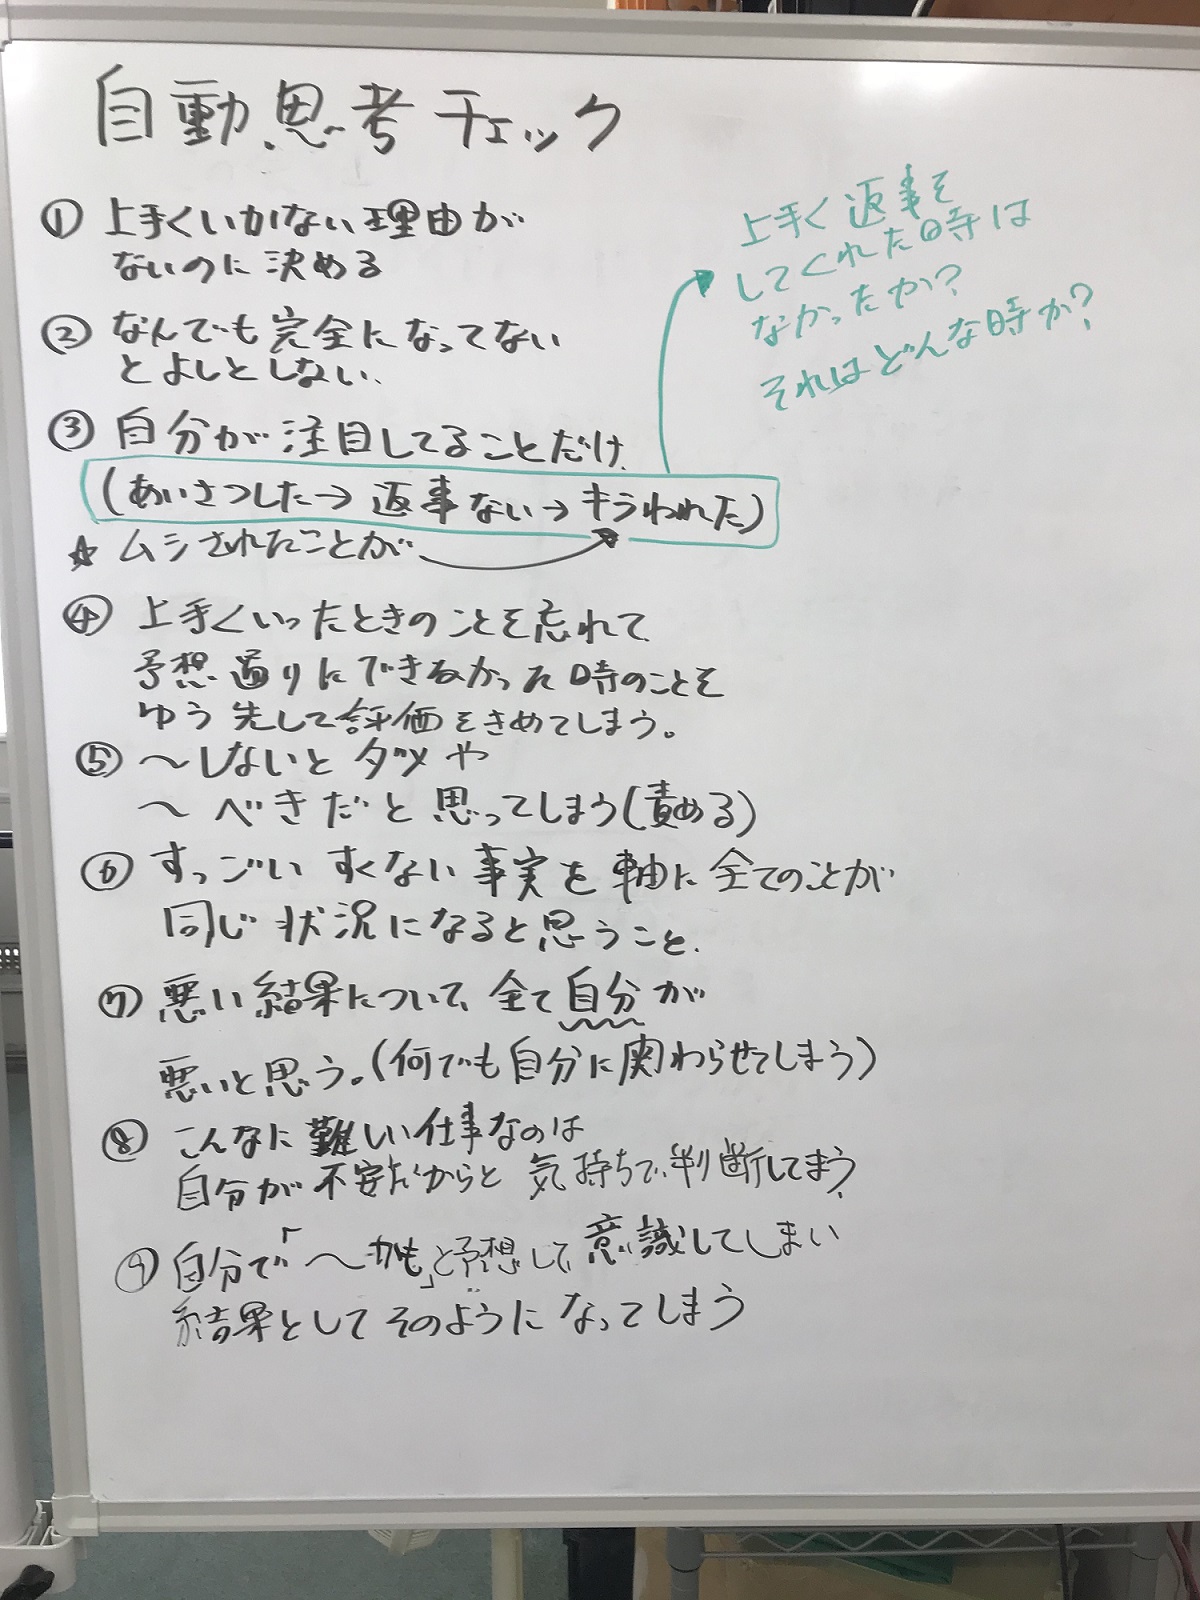 自動思考チェック
① 上手くいかない理由が
ないのに決める
② なんでも完全になってない
とよしとしない、
③ 自分が注目してることだけ、
(あいさつした→返事ない→キラわれた)
☆ ムシされたことが
上手く返事を
してくれた時は
なかったか?
それはどんな時か?
④ 上手くいったときのことを忘れて
予想通りにできなかった時のことを
ゆう先して評価をきめてしまう。
⑤ 〜しないとダメや
〜べきだと思ってしまう(責める)
⑥ すっごいすくない事実を軸に全てのことが
同じ状況になると思うこと、
⑦ 悪い結果について、全て自分が
悪いと思う。(何でも自分に関わらせてしまう)
⑧ こんなに難しい仕事なのは
自分が不安だからと気持ちで判断してまう、
⑨ 自分で「〜かも」と予想して、意識してしまい
結果としてそのようになってしまう